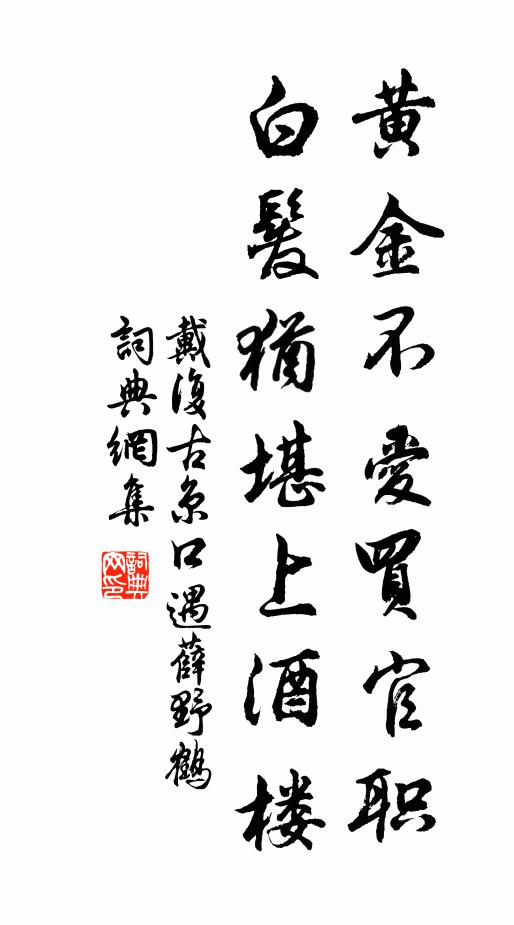 黄金不愛買官职
白髮猶堪上酒楼
戴復古京口遇薛野鶴
詞典網集
詞典網印